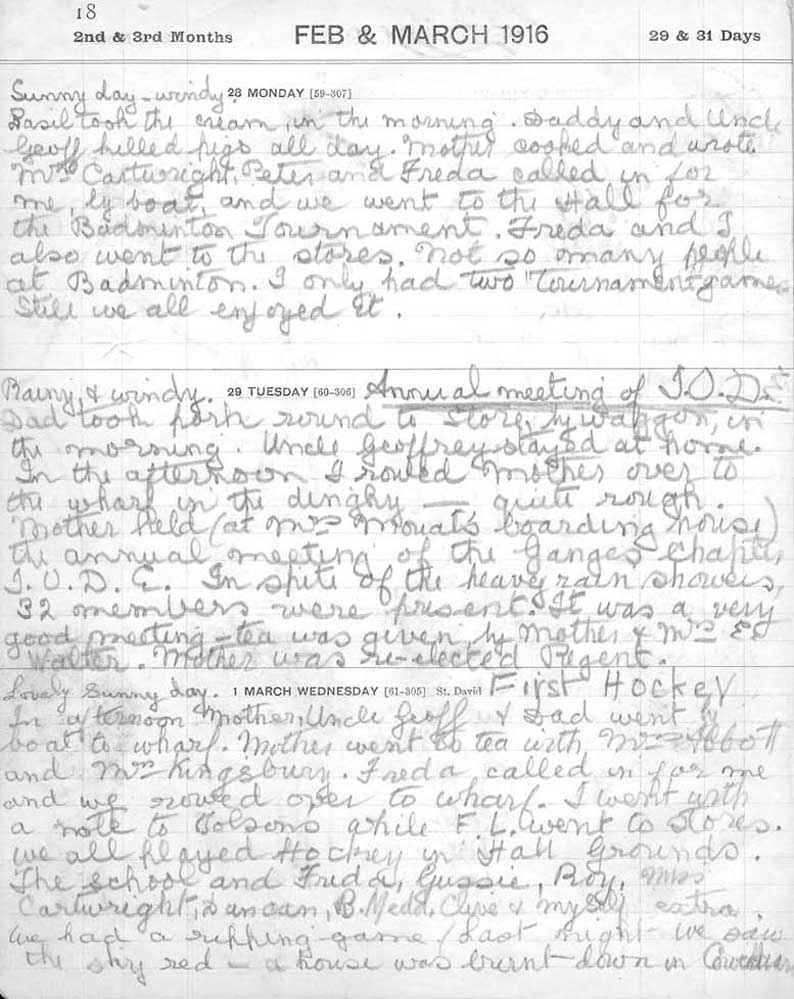 18
2nd & 3rd Months FEB & MARCH 1916 29 & 31 Days
Sunny day - windy. 28 MONDAY [59-307]
Basil took the cream, in the morning. Daddy and Uncle
Geoff killed pigs all day. Mother cooked and wrote.
Mrs Cartwright, Peter and Freda called in for
me, by boat, and we went to the Hall for
the Badminton Tournament. Freda and I
also went to the stores. Not so many people
at Badminton. I only had two Tournament games
Still we all enjoyed it.
Rainy & windy. 29 TUESDAY [60-306] Annual meeting of I.O.D.E
Dad took pork round to store, by waggon, in
the morning. Uncle Geoffrey stayed at home.
In the afternoon I rowed Mother over to
the wharf in the dinghy — quite rough.
Mother held (at Mrs Mouat's boarding house)
the annual meeting of the Ganges Chapter,
I.O.D.E. In spite of the heavy rain showers,
32 members were present. It was a very
good meeting - tea was given by Mother & Mrs
Walter. Mother was re-elected Regent.
Lovely sunny day. 1 MARCH WEDNESDAY [61-305] St. David First Hockey
In afternoon Mother, Uncle Geoff & Dad went by
boat to wharf. Mother went to tea with Mrs Abbott
and Mrs Kingsbury. Freda called in for me
and we rowed over to wharf. I went with
a note to while F.L. went to stores.
We all played Hockey in Hall Grounds.
The school and Freda, Gussie, Roy, Miss
Cartwright, Duncan, B. Medd, Clive & myself extra.
We had a ripping game / Last night we saw
the sky red - a house was burnt down in